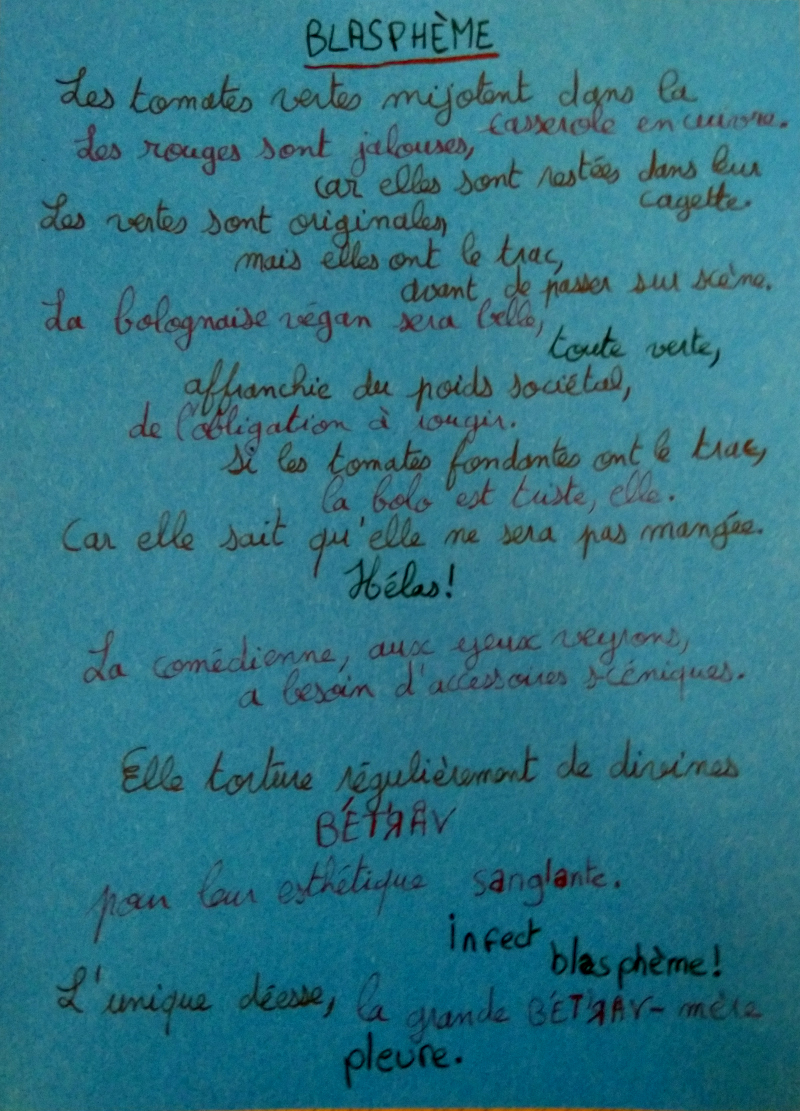 BLASPHÈME
Les tomates vertes mijotent dans la
casserole en cuivre.
Les rouges sont jalouses,
car elles sont restées dans leur
cagette.
Les vertes sont originales,
mais elles ont le trac,
avant de passer sur scène.
La bolognaise végan sera belle,
toute verte,
affranchie du poids sociétal,
de l'obligation à rougir.
Si les tomates fondantes ont le trac,
la bolo est triste, elle.
Car elle sait qu'elle ne sera pas mangée.
Hélas!
La comédienne, aux yeux veyrons,
a besoin d'accessoires scéniques.
Elle torture régulièrement de divines
BÉTЯAV
pour leur esthétique sanglante.
infect
blasphème!
L'unique déesse, la grande BÉTЯAV-mère
pleure.